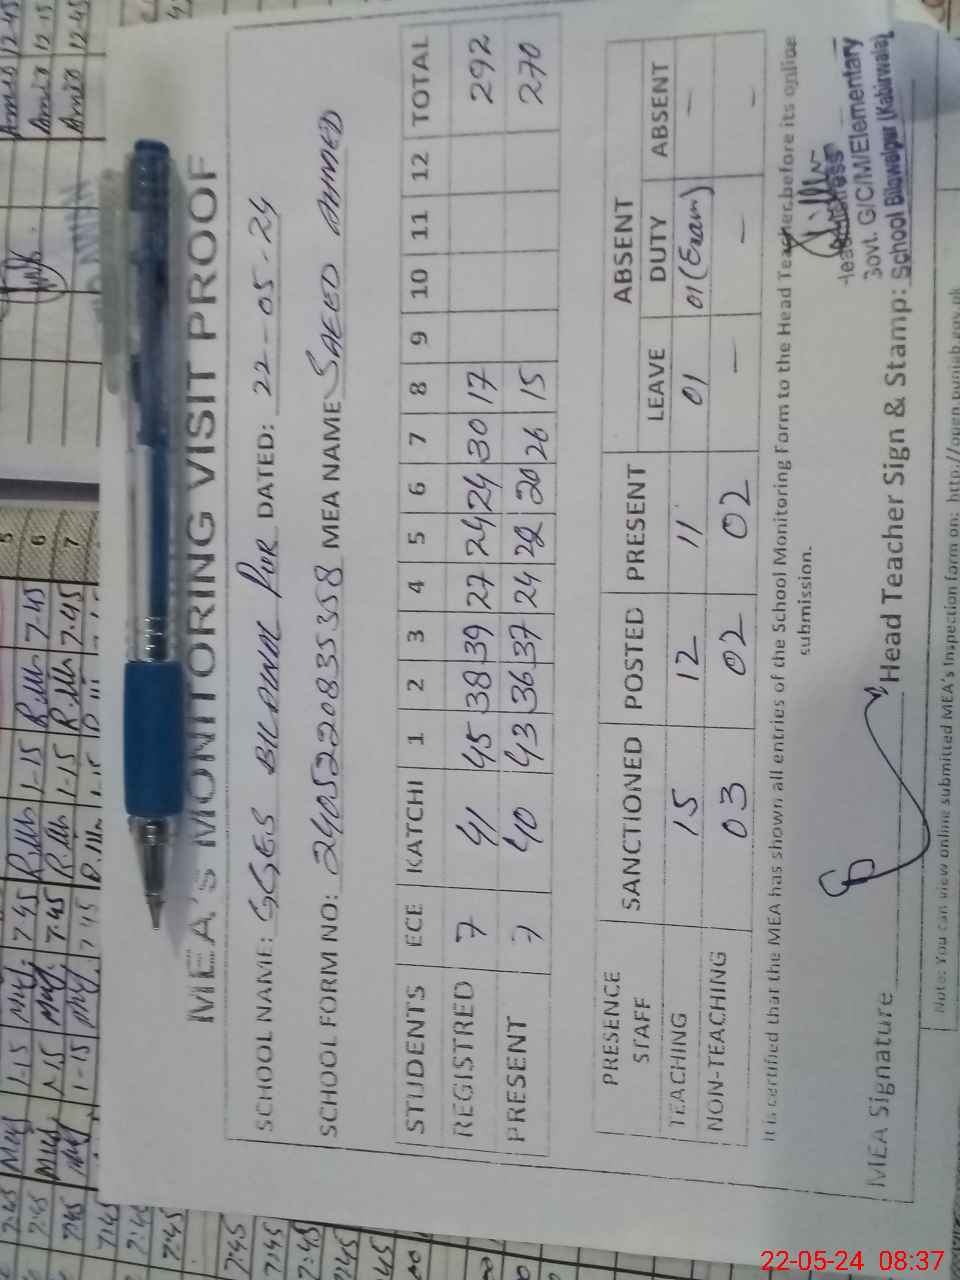 MEA'S MONITORING VISIT PROOF
SCHOOL NAME: GGES BILAWAL PUR DATED: 22-05-24
SCHOOL FORM NO: 2405220835358 MEA NAME SAEED AHMED
STUDENTS ECE KATCHI 1 2 3 4 5 6 7 8 9 10 11 12 TOTAL
REGISTRED 7 41 45 38 39 27 24 24 30 17 292
PRESENT 7 40 43 36 37 24 22 20 26 15 270
PRESENCE STAFF SANCTIONED POSTED PRESENT ABSENT
LEAVE DUTY ABSENT
TEACHING 15 12 11 01 01(Exam) -
NON-TEACHING 03 02 02 - - -
It is certified that the MEA has shown all entries of the School Monitoring Form to the Head Teacher before its online
submission.
MEA Signature Head Teacher Sign & Stamp:
Headmistress
Govt. G/C/M/Elementary
School Bilawalpur (Kabirwala)
Note: You can view online submitted MEA's Inspection form on: http://open.punjab.gov.pk
5
6 7-45 1-15 7-45 1-15
7 7-45 1-15 7:45 1-15
7:45
7:45
7:45
22-05-24 08:37